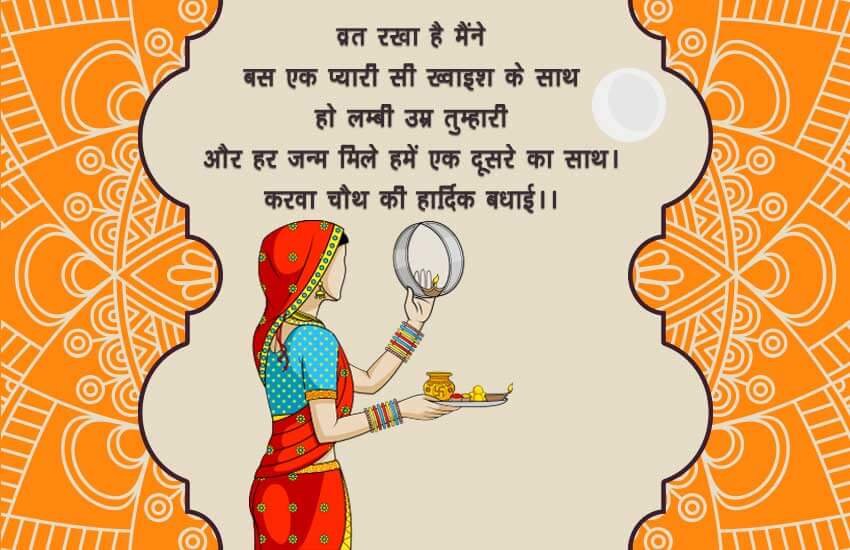 व्रत रखा है मैंने
बस एक प्यारी सी ख्वाइश के साथ
हो लम्बी उम्र तुम्हारी
और हर जन्म मिले हमें एक दूसरे का साथ।
करवा चौथ की हार्दिक बधाई।।